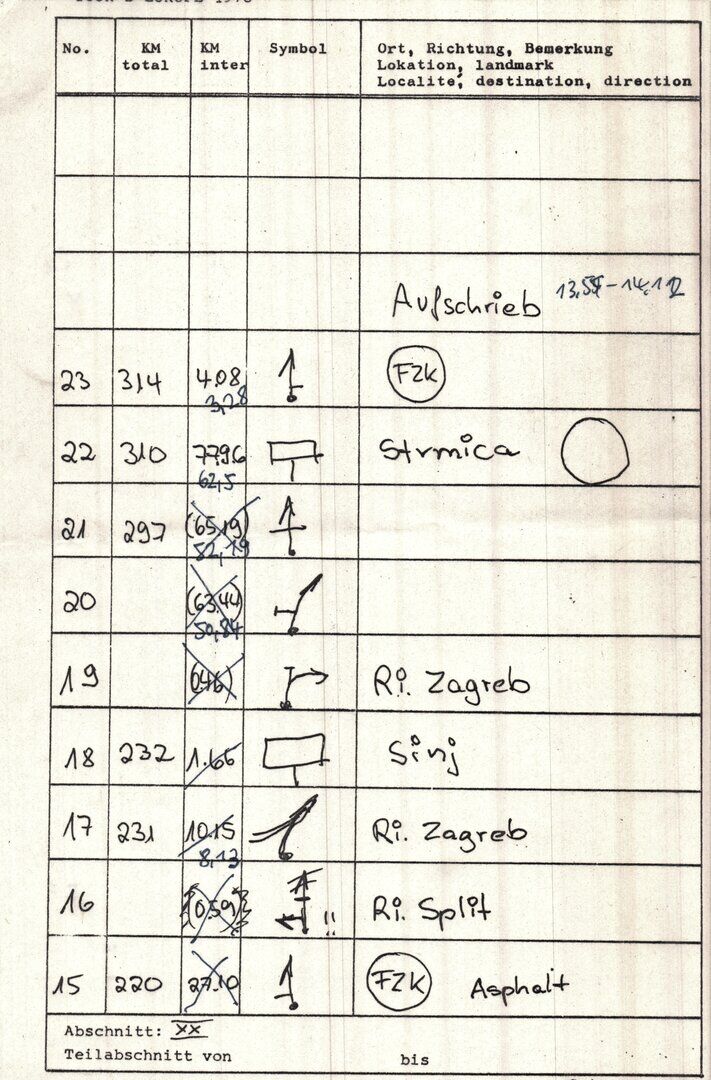 No. KM total KM inter Symbol Ort, Richtung, Bemerkung
Lokation, landmark
Localité, destination, direction
Aufschrieb 13,55-14,12
23 314 4.08 FZK
3,28
22 310 77.96 Strmica
62,5
21 297 (65.19)
52,19
20 (63.44)
50,84
19 (0.46) Ri. Zagreb
18 232 1.66 Sinj
17 231 10.15 Ri. Zagreb
8,13
16 (0.59) !! Ri. Split
15 220 27.10 FZK Asphalt
Abschnitt: XX
Teilabschnitt von bis